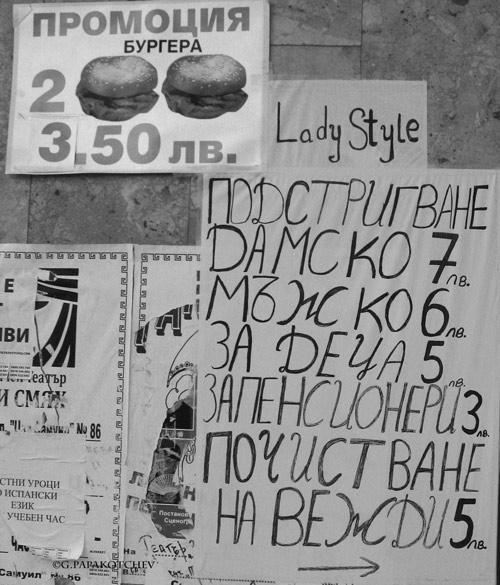 ПРОМОЦИЯ
БУРГЕРА
2
3.50 лв.
Lady Style
ПОДСТРИГВАНЕ
ДАМСКО 7 лв.
МЪЖСКО 6 лв.
ЗА ДЕЦА 5 лв.
ЗА ПЕНСИОНЕРИ 3 лв.
ПОЧИСТВАНЕ
НА ВЕЖДИ 5 лв.
Е
ИВИ
И СМЯХ
№ 86
УРОЦИ
ИСПАНСКИ
ЕЗИК
УЧЕБЕН ЧАС
Самуил" № 86
Театър
©G.PAPAKOTCHEV